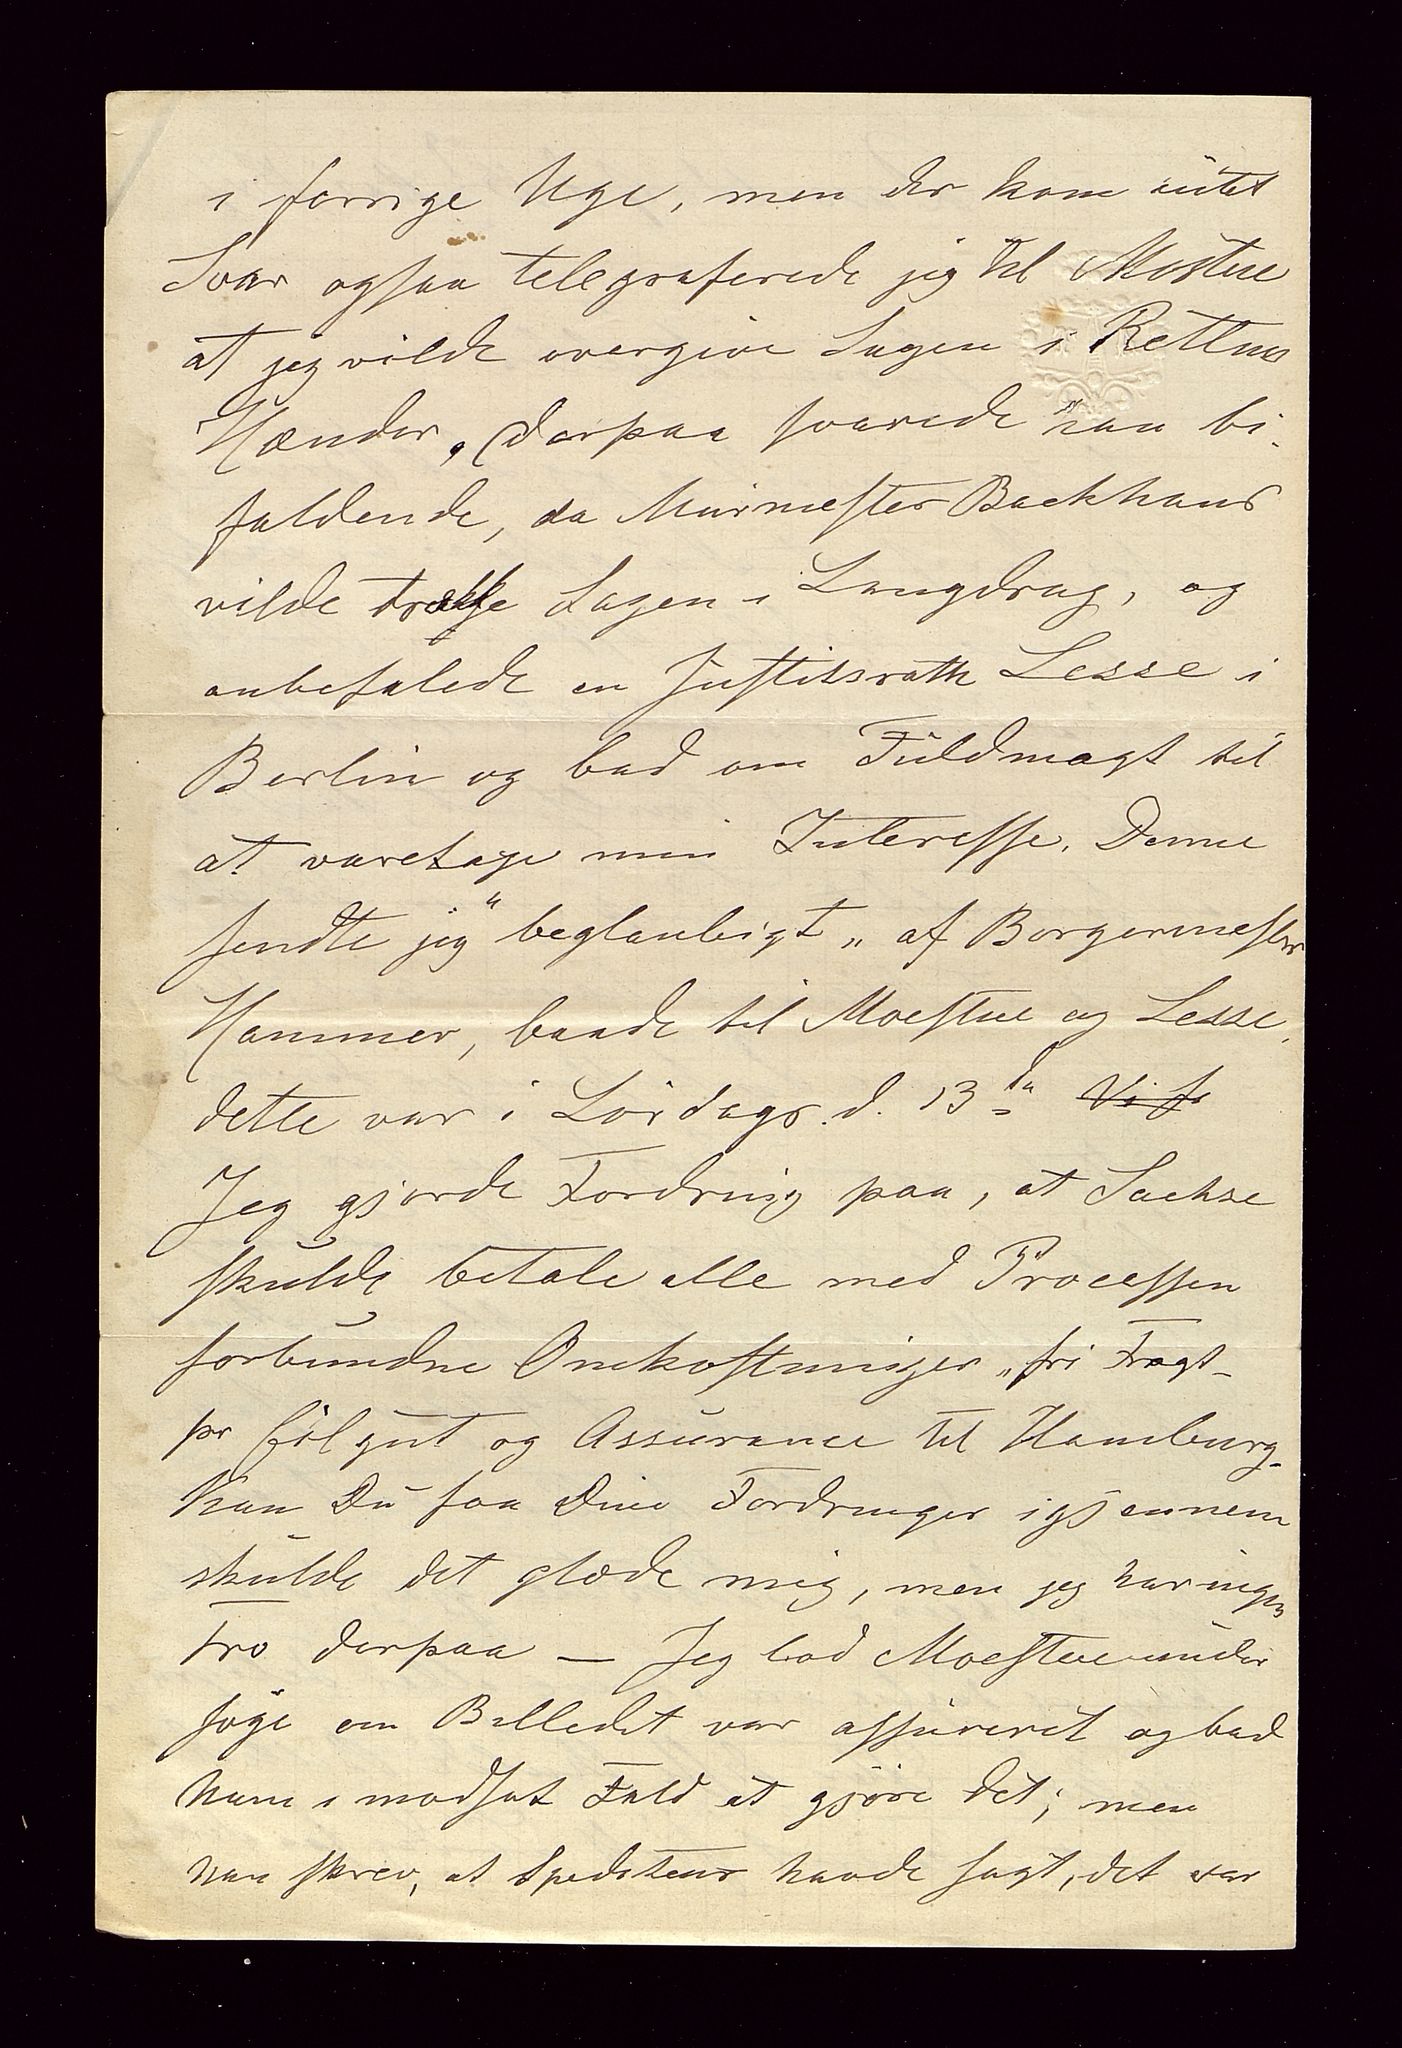 i forrige Uge, men der kom intet
Svar ogsaa telegraferede jeg til Mostue
at jeg vilde overgive Sagen i Rettens
Hænder, derpaa svarede han bi-
faldende, da Murmester Backhaus
vilde trække Sagen i Langdrag, og
anbefalede en Justitsrath Lesse i
Berlin og bad om Fuldmagt til
at varetage min Interesse. Denne
sendte jeg "beglaubigt" af Borgermester
Hammer, baade til Moestue og Lesse,
dette var i Lördags d. 13de
Jeg gjorde Fordring paa, at Sachse
skulde betale alle med Processen
forbundne Omkostninger, fri Fragt-
pr Eilgut og Assurance til Hamburg.
Kan Du faa Dine Fordringer igjennem
skulde det glæde mig, men jeg har ingen
Tro derpaa — Jeg bad Moestue under
söge om Billedet var assureret og bad
ham i modsat Fald at gjöre det; men
han skrev, at Spediteur havde sagt, det var